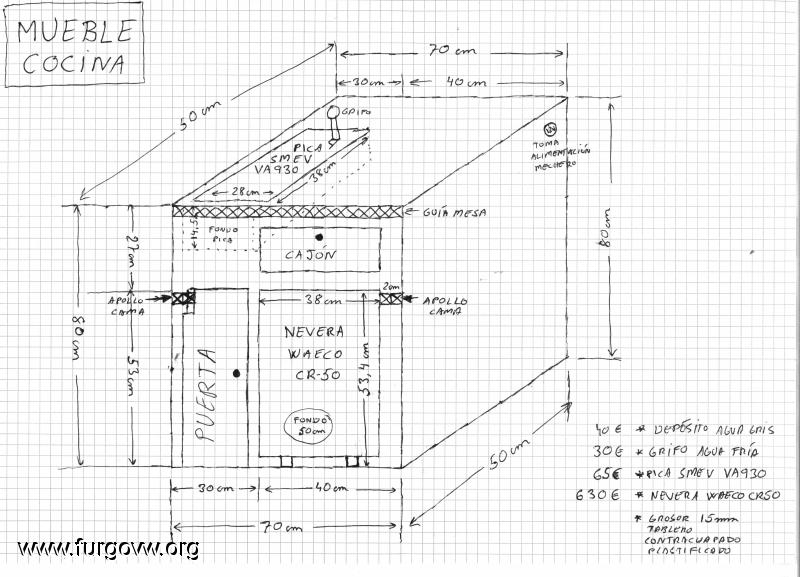 MUEBLE
COCINA
70 cm
30cm
40 cm
50 cm
GRIFO
PICA
SMEV
VA930
28cm
38cm
TOMA
ALIMENTACIÓN
MECHERO
GUÍA MESA
FONDO
PICA
14,5
CAJÓN
27cm
80cm
80cm
APOLLO
CAMA
38cm
2cm
APOLLO
CAMA
NEVERA
WAECO
CR-50
PUERTA
53cm
53,4cm
FONDO
50cm
30 cm
40 cm
70 cm
50cm
40€ * DEPÓSITO AGUA GRIS
30€ * GRIFO AGUA FRÍA
65€ * PICA SMEV VA930
630€ * NEVERA WAECO CR50
* GROSOR 15mm
TABLERO
CONTRACHAPADO
PLASTIFICADO
www.furgovw.org